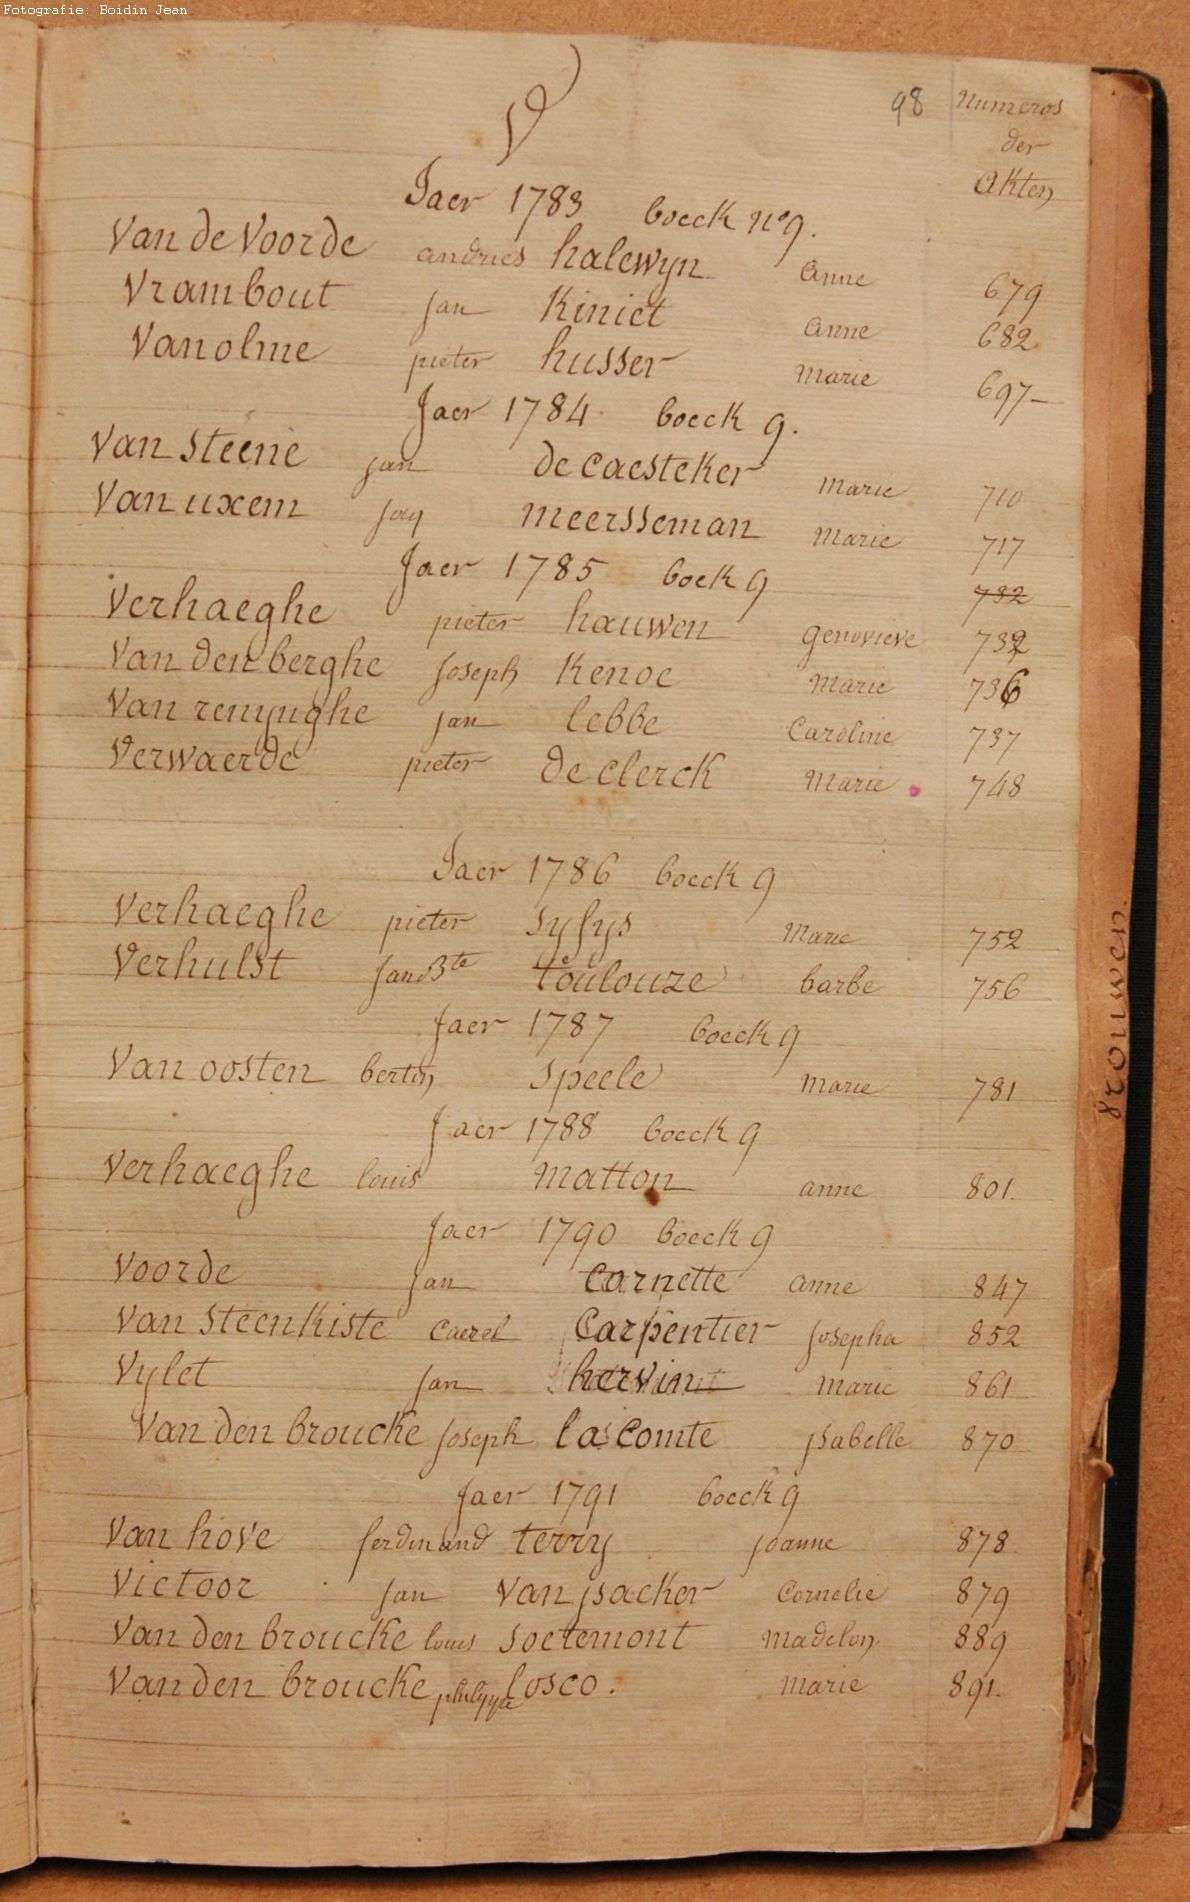 Fotografie: Boidin Jean
V
98 Numeros
der
Akten
Jaer 1783 boeck nº 9.
Van de Voorde andries halewyn Anne 679
Vrambout jan Kiniet Anne 682
Vanolme pieter husser Marie 697
Jaer 1784 boeck 9.
Van Steene jan de caesteker Marie 710
Van uxem jaq meersseman Marie 717
Jaer 1785 boek 9
732
Verhaeghe pieter hauwen genovieve 732
Van den berghe joseph Kenoe Marie 736
Van renynghe jan lebbe Caroline 737
Verwaerde pieter de clerck Marie 748
Jaer 1786 boeck 9
Verhaeghe pieter sysys Marie 752
Verhulst jan Bte toulouze barbe 756
Jaer 1787 boeck 9
Van oosten bertin speele Marie 781
Jaer 1788 boeck 9
Verhaeghe louis matton anne 801.
Jaer 1790 boeck 9
Voorde jan Carnette anne 847
Van Steenkiste Caerel Carpentier josepha 852
Vylet jan hervin Marie 861
Van den broucke joseph las Comte jsabelle 870
Jaer 1791 boeck 9
Van hove ferdinand terry joanne 878
Victoor jan Van jsacker Cornelie 879
Van den broucke louis soetemont Madelon 889
Van den broucke philippe losco. Marie 891.
vrouwen.